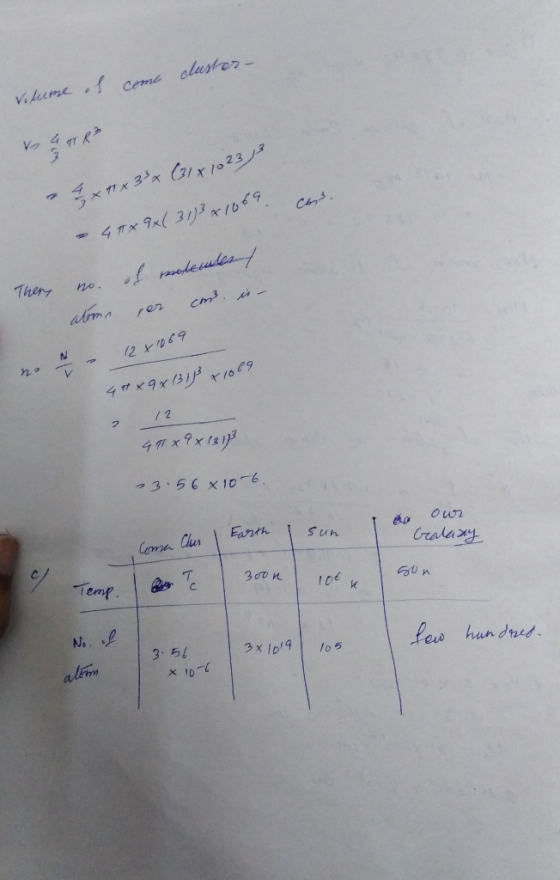 Volume of coma cluster-
V = 4/3 π R³
= 4/3 × π × 3³ × (31 × 10²³)³
= 4π × 9 × (31)³ × 10⁶⁹. cm³.
Then, no. of molecules/
atoms per cm³. is -
n = N/V = 12 × 10⁶⁹ / 4π × 9 × (31)³ × 10⁶⁹
= 12 / 4π × 9 × (31)³
= 3.56 × 10⁻⁶.
c) Coma Clus Earth Sun Our Galaxy
Temp. T_c 300 K 10⁶ K 50 K
No. of atoms 3.56 × 10⁻⁶ 3×10¹⁹ 105 few hundred.